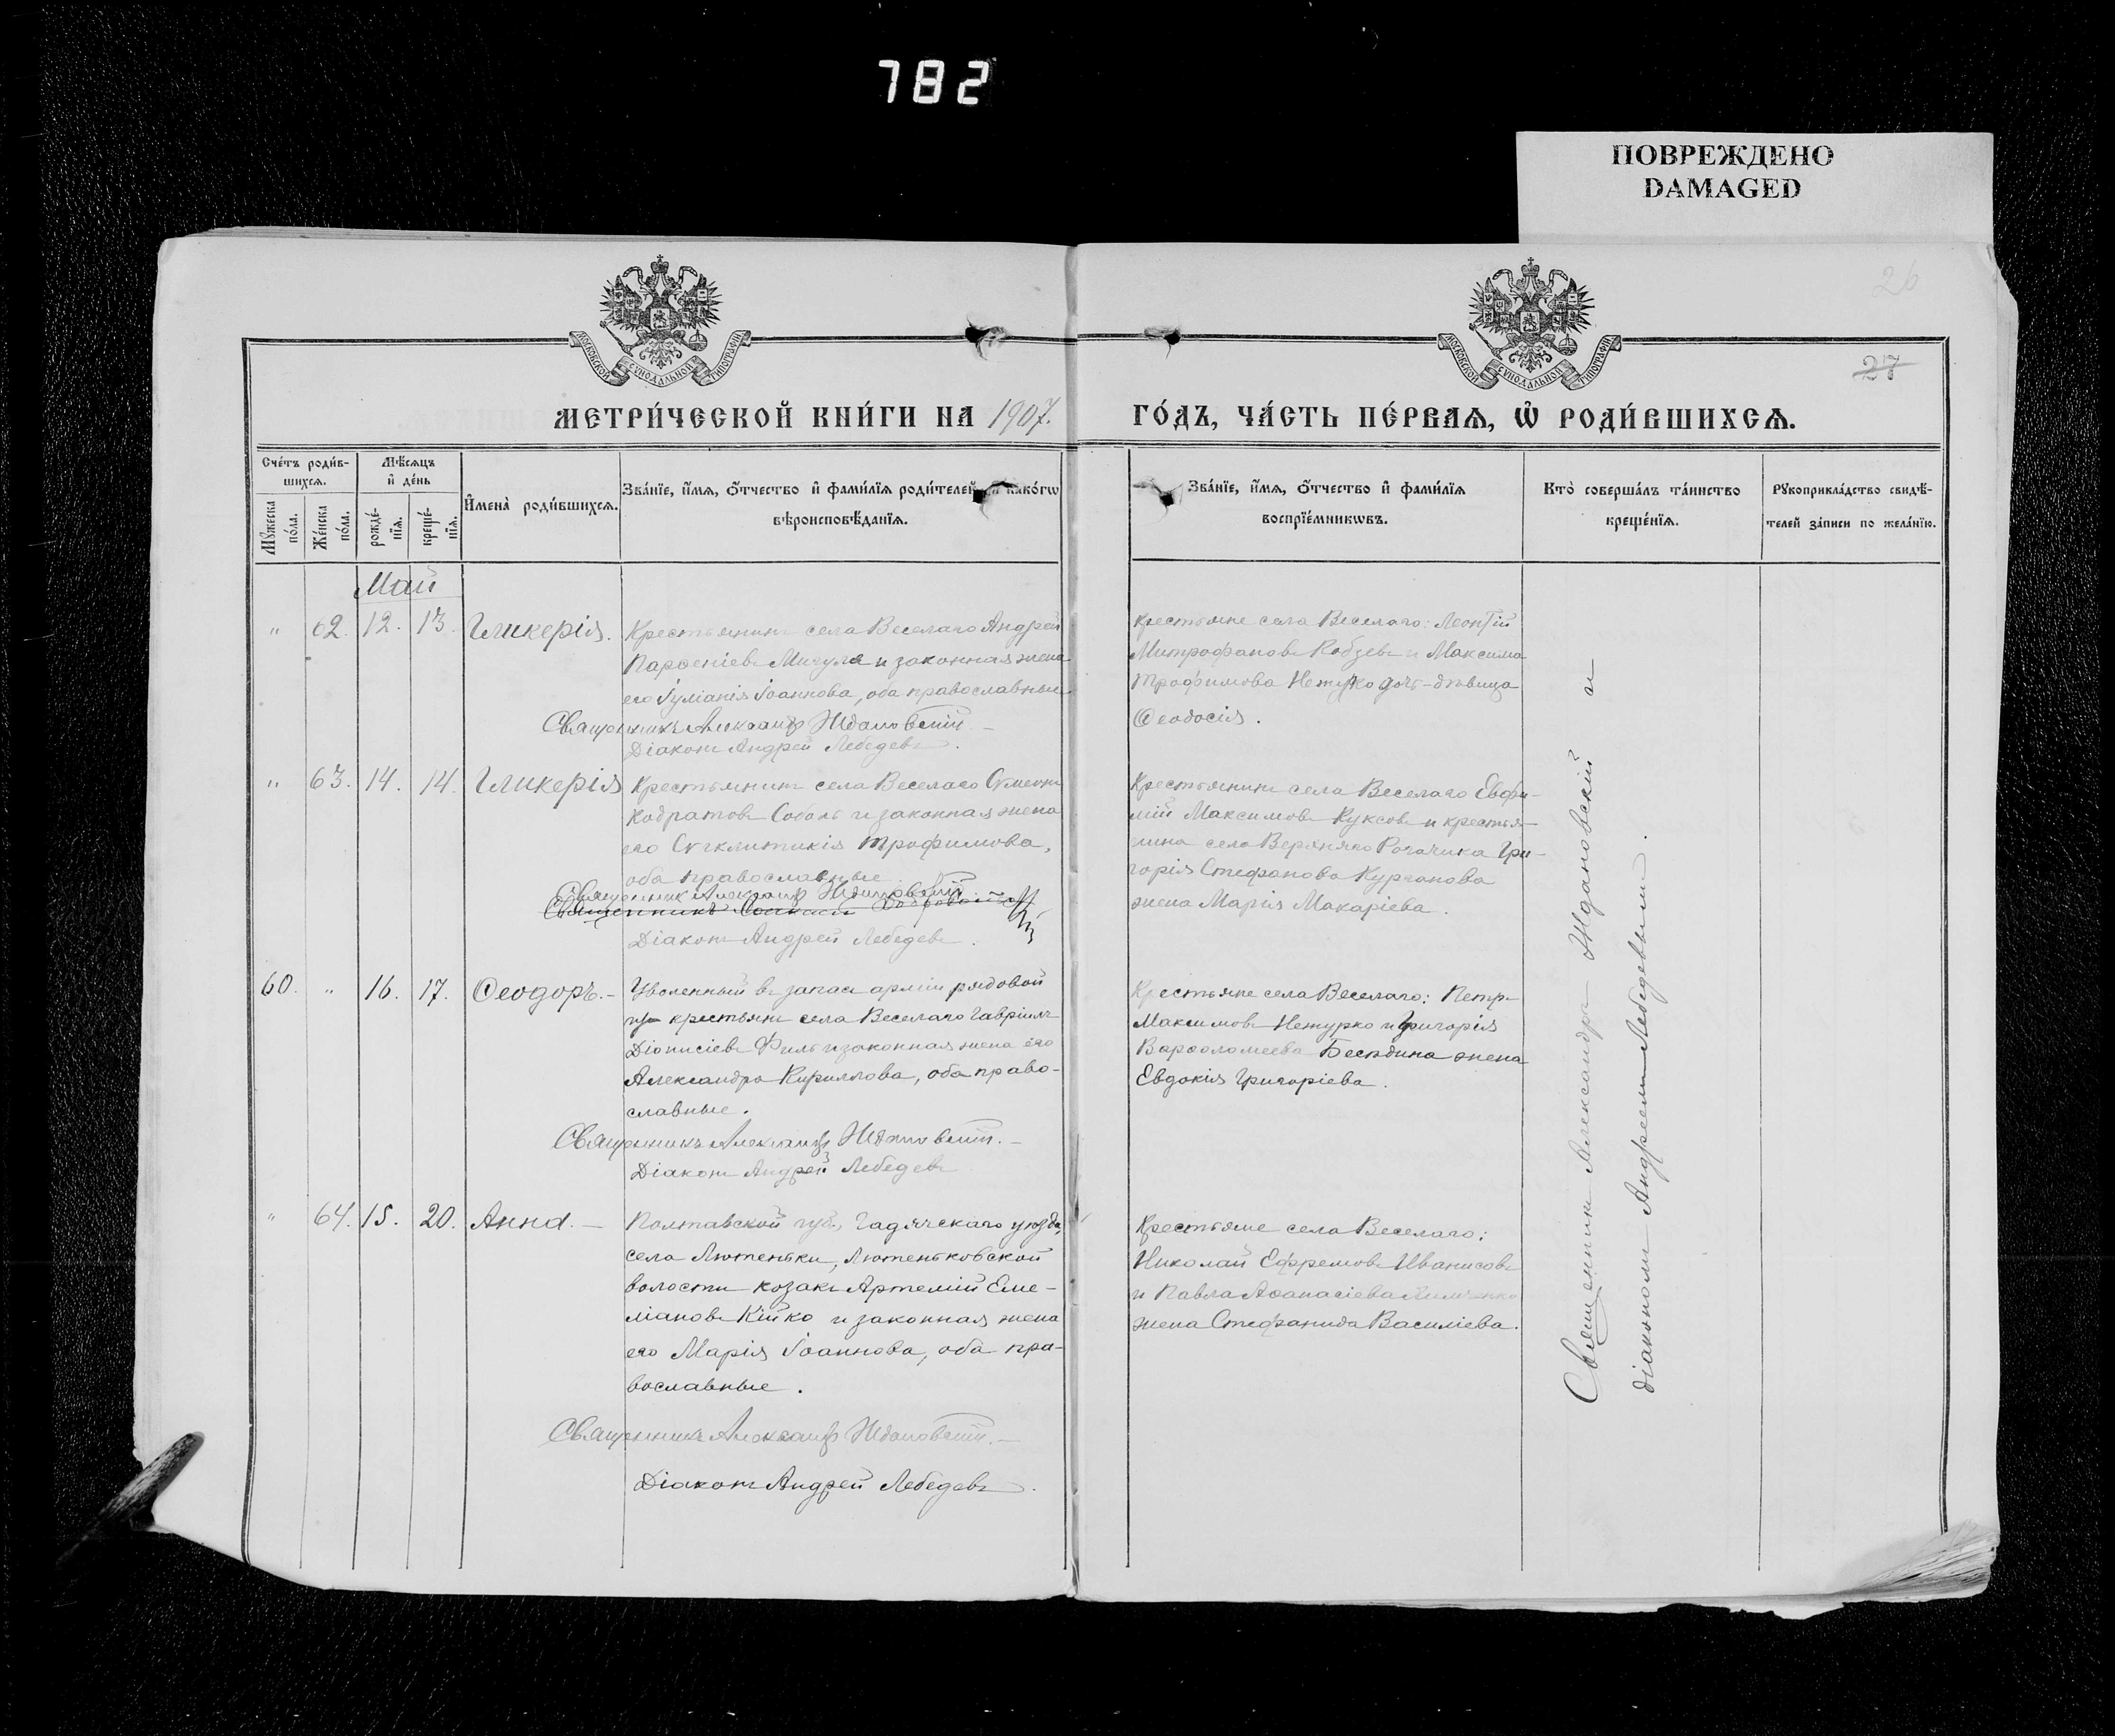 782
ПОВРЕЖДЕНО
DAMAGED
26
27
МОСКОВСКОЙ СѴНОДАЛЬНОЙ ТИПОГРАФІИ
МОСКОВСКОЙ СѴНОДАЛЬНОЙ ТИПОГРАФІИ
МЕТРИ́ЧЕСКОЙ КНИ́ГИ НА 1907.
ГО́ДЪ, ЧА́СТЬ ПЕ́РВАѦ, Ѡ҆ РОДИ́ВШИХСѦ.
Сче́тъ роди́в-
шихсѧ.
Мꙋжеска по́ла.
Же́нска по́ла.
Мѣ́сѧцъ и҆ де́нь
рожде́-нїѧ.
креще́-нїѧ.
И҆мена̀ роди́вшихсѧ.
Зва́нїе, и҆́мѧ, ѻ҆́тчество и҆ фами́лїѧ роди́телей, и҆ како́гѡ
вѣроисповѣ́данїѧ.
Зва́нїе, и҆́мѧ, ѻ҆́тчество и҆ фами́лїѧ
воспрїе́мникѡвъ.
Кто̀ соверша́лъ та́инство
креще́нїѧ.
Рꙋкоприкла́дство свидѣ́-
телей за́писи по жела́нїю.
Май
" 62. 12. 13. Гликерія.
Крестьянинъ села Веселаго Андрей
Парѳеніевъ Мигуля и законная жена
его Іуліанія Іоаннова, оба православные
Священникъ Александръ Ждановскій
Діаконъ Андрей Лебедевъ.
Крестьяне села Веселаго: Леонтій
Митрофановъ Кобзевъ и Максима
Трофимова Нетурко дочь-дѣвица
Ѳеодосія.
" 63. 14. 14. Гликерія
Крестьянинъ села Веселаго Сѵмеонъ
Кодратовъ Соболь и законная жена
его Сѵгклитикія Трофимова,
оба православные
Священникъ Александръ Ждановскій
Священникъ
Діаконъ Андрей Лебедевъ.
Крестьянинъ села Веселаго Евфи-
мій Максимовъ Куксовъ и крестья-
нина села Верхняго Рогачика Гри-
горія Стефанова Курганова
жена Марія Макаріева.
60. " 16. 17. Ѳеодоръ.
Уволенный въ запасъ арміи рядовой
изъ крестьянъ села Веселаго Гавріилъ
Діонисіевъ Филь и законная жена его
Александра Кириллова, оба право-
славные.
Священникъ Александръ Ждановскій.
Діаконъ Андрей Лебедевъ
Крестьяне села Веселаго: Петръ
Максимовъ Нетурко и Григорія
Варѳоломеева Бесѣдина жена
Евдокія Григоріева.
" 64. 15. 20. Анна.
Полтавской губ., Гадячскаго уѣзда,
села Лютеньки, Лютеньковской
волости козакъ Артемій Еме-
ліановъ Кійко и законная жена
его Марія Іоаннова, оба пра-
вославные.
Священникъ Александръ Ждановскій.
Діаконъ Андрей Лебедевъ.
Крестьяне села Веселаго:
Николай Ефремовъ Иванисовъ
и Павла Аѳанасіева
жена Стефанида Василіева.
Священникъ Александръ Ждановскій и
діакономъ Андреемъ Лебедевымъ.